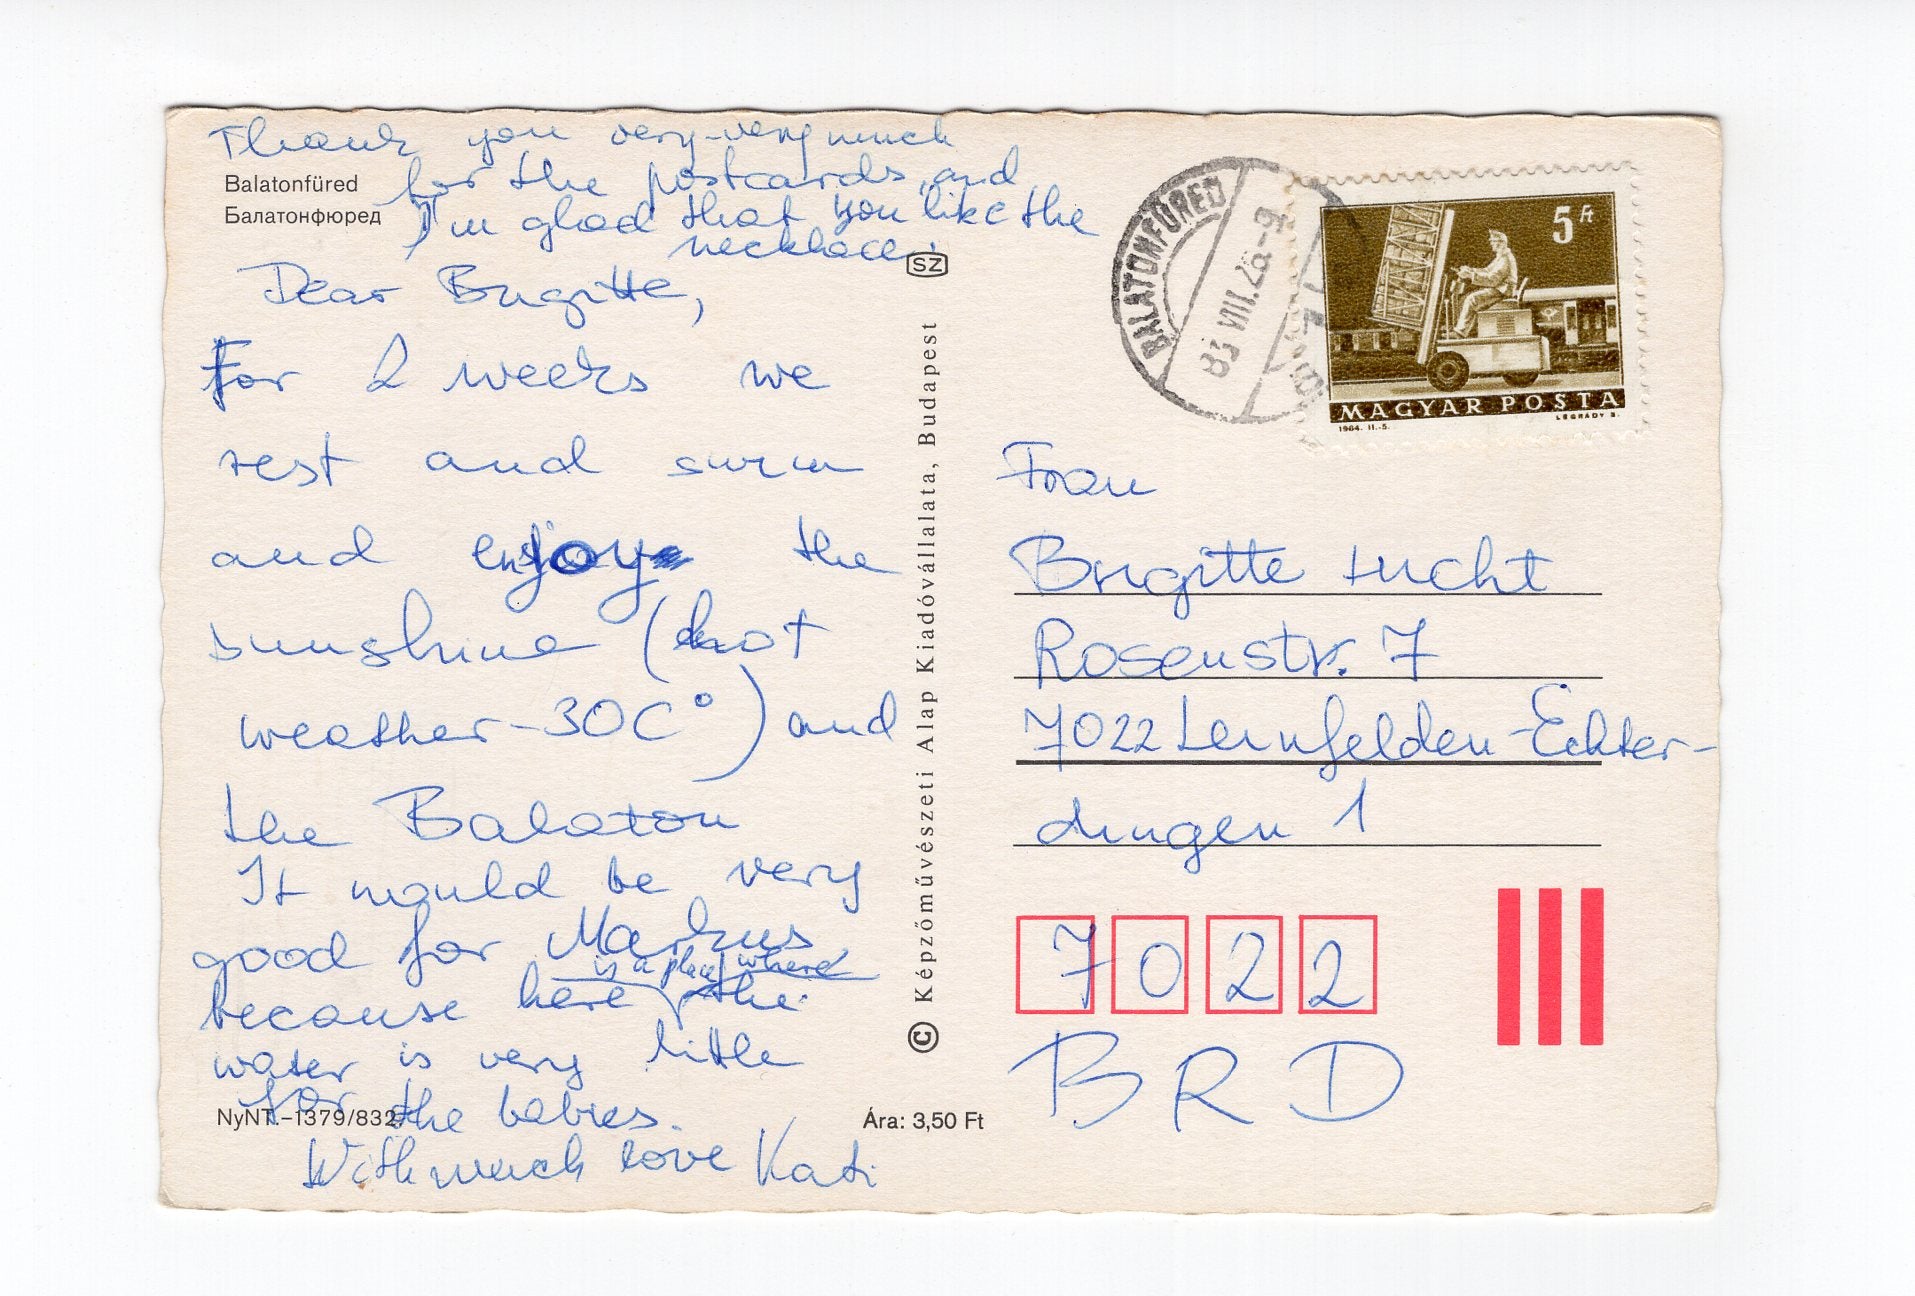 Thank you very-very much
for the postcards, and
I'm glad that you like the
necklace.
Balatonfüred
Балатонфюред
Dear Brigitte,
For 2 weeks we
rest and swim
and enjoy the
sunshine (hot
weather - 30C°) and
the Balaton
It would be very
good for Markus
is a place where
because here the
water is very little
for the babies.
With much love Kati
NyNT.-1379/832
Ára: 3,50 Ft
SZ
© Képzőművészeti Alap Kiadóvállalata, Budapest
BALATONFÜRED
83 VIII. 26-9
5 Ft
MAGYAR POSTA
1964. II.-5.
LÉGRÁDY S.
Frau
Brigitte Lucht
Rosenstr. 7
7022 Leinfelden-Echter-
dingen 1
7022
BRD